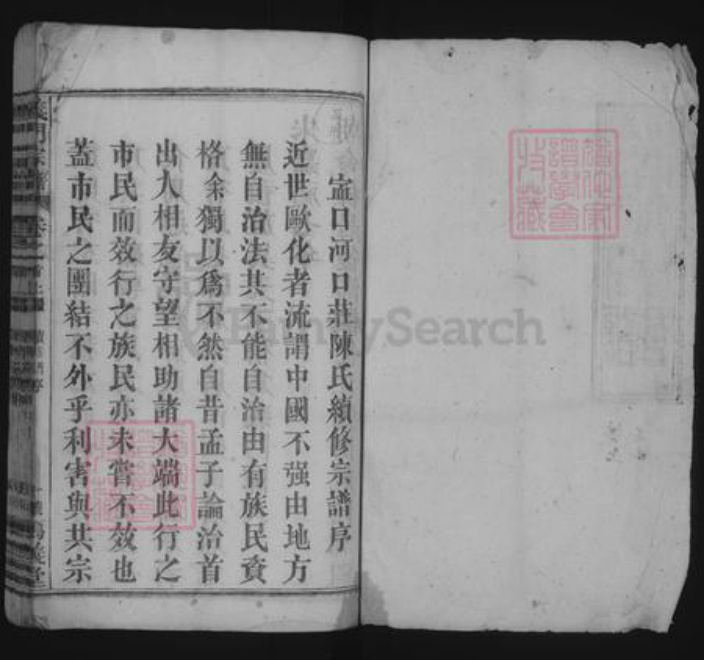 盂口河口莊陳氏續修宗譜序
近世歐化者流謂中國不强由地方
無自治法其不能自治由有族民資
格余獨以爲不然自昔孟子論治首
出入相友守望相助諸大端此行之
市民而效行之族民亦未嘗不效也
蓋市民之團結不外乎利害與共宗
FamilySearch